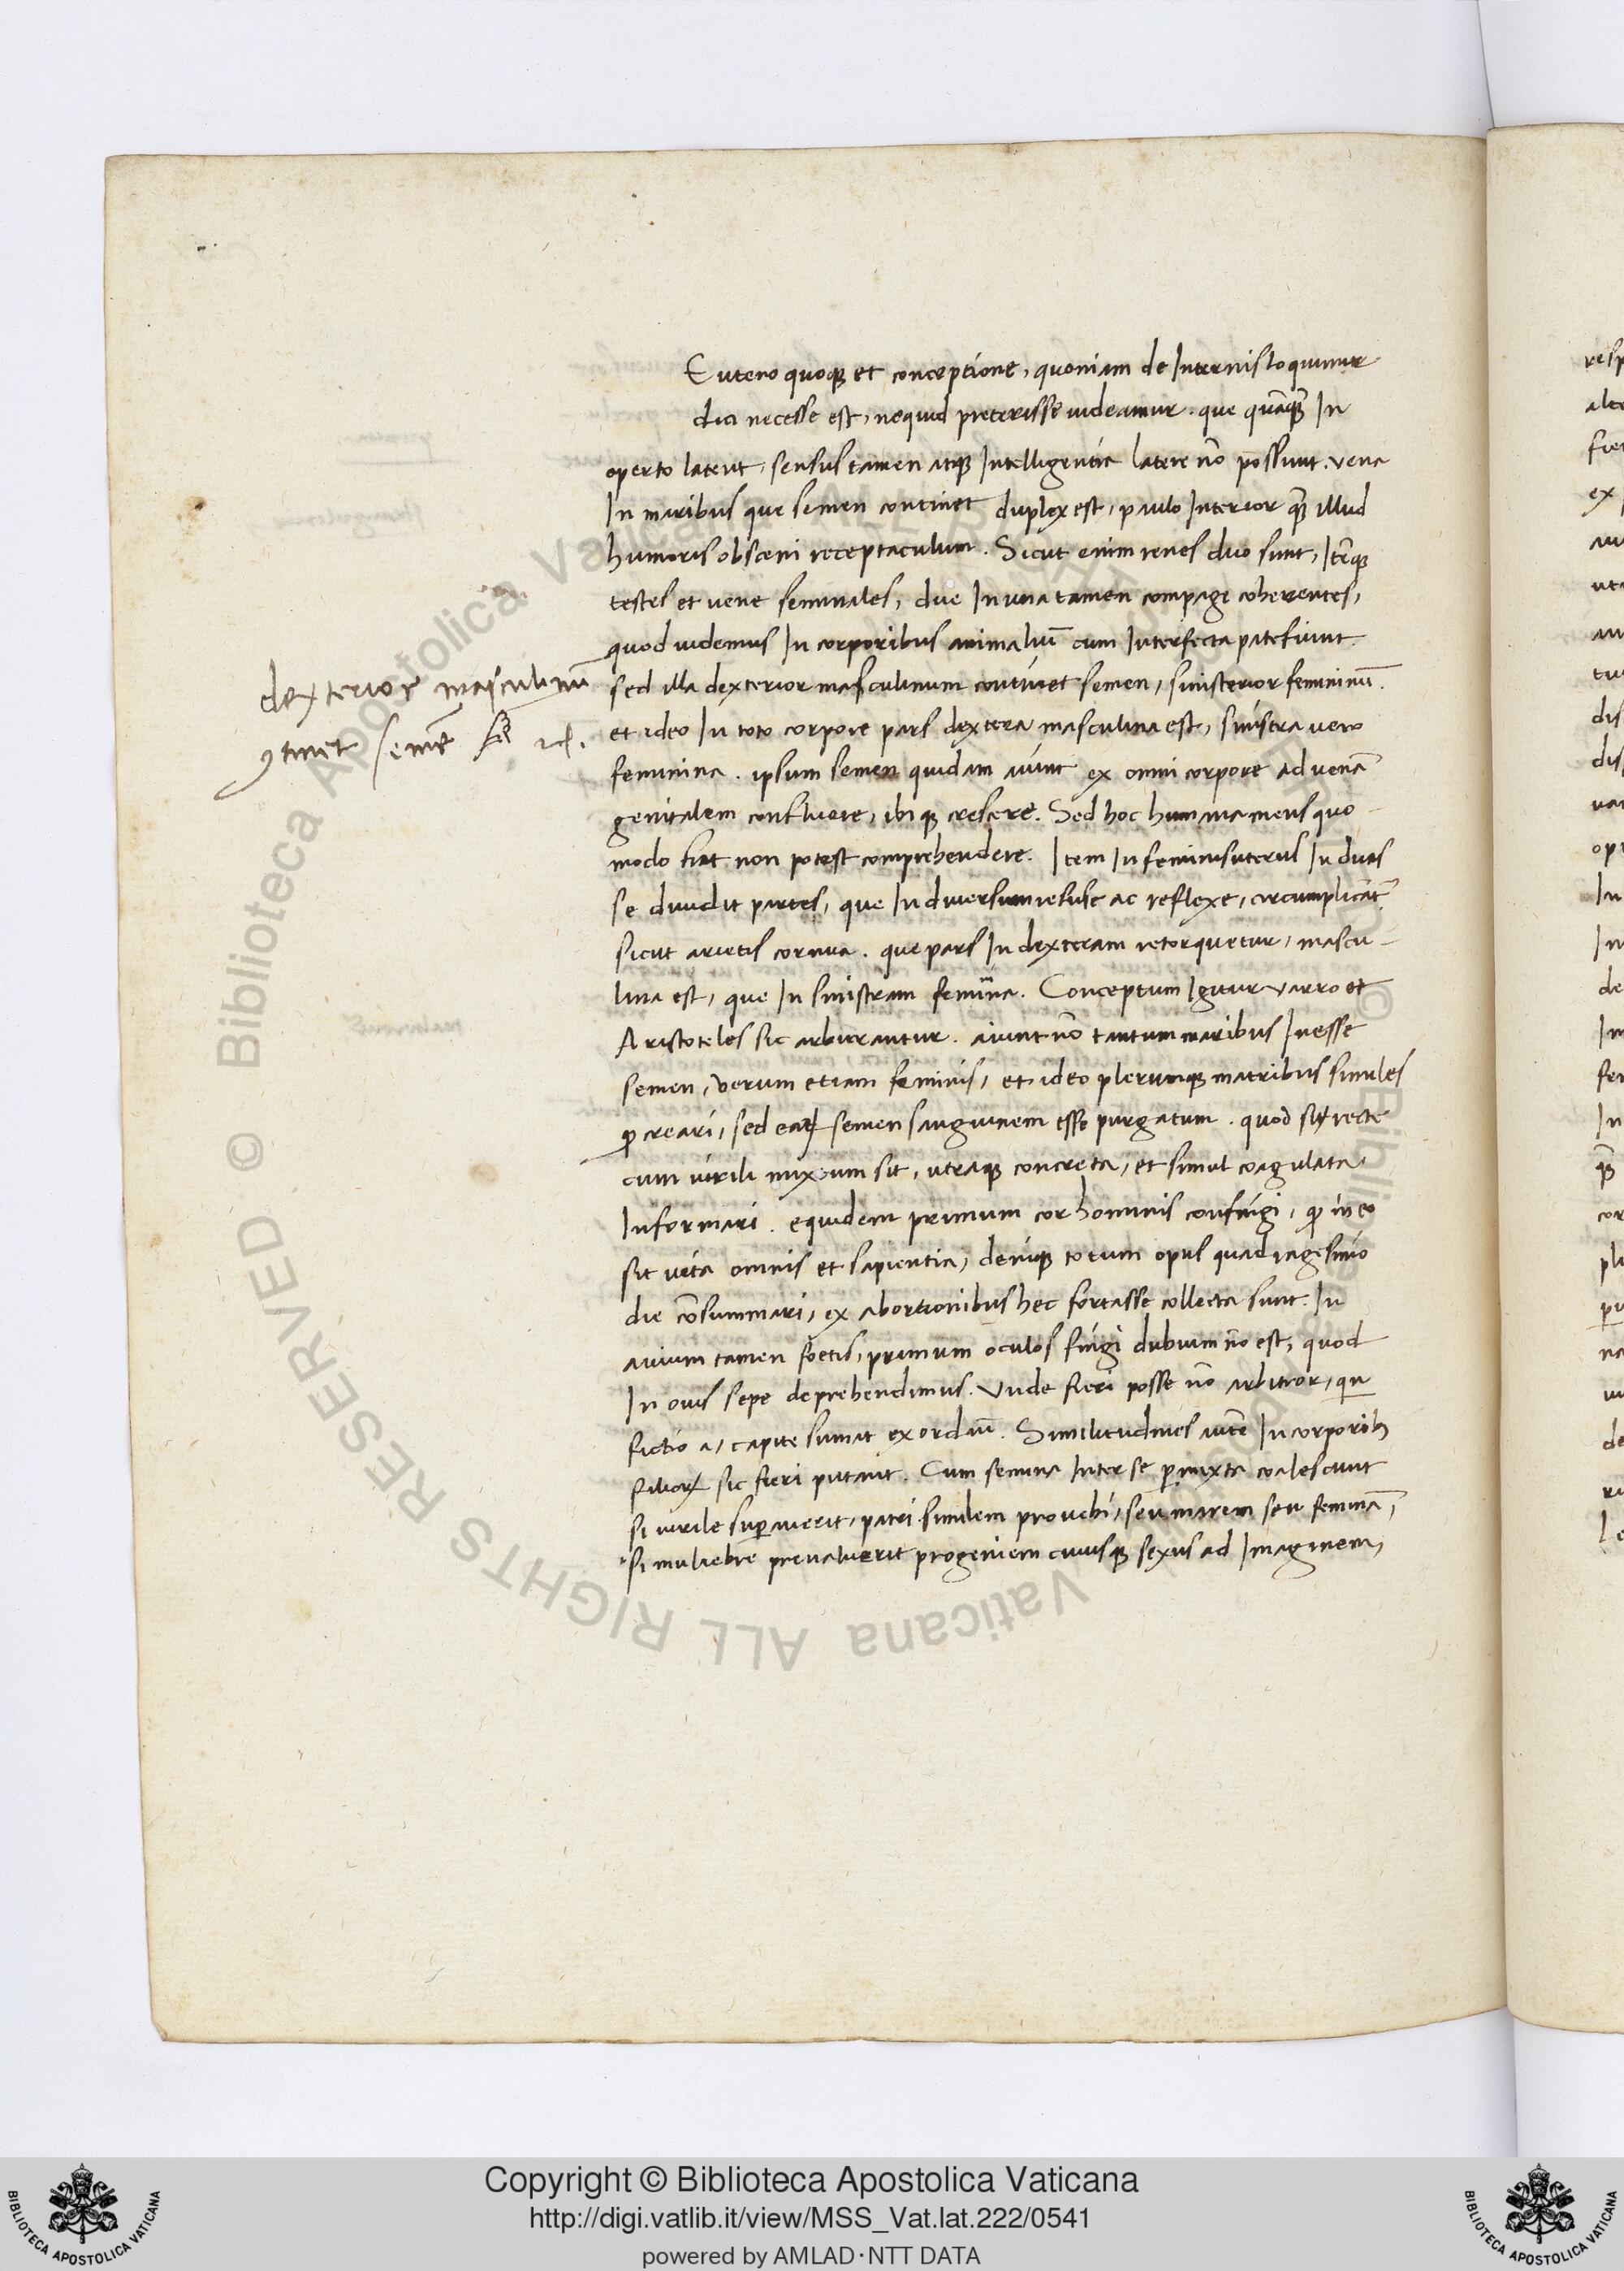 E utero quoque et conceptione, quoniam de Internis loquimur
dici necesse est, nequid preterisse uideamur. que quãq̃ In
operto latent, sensus tamen atq; Intelligentia latere nõ possunt. vena
In maribus que semen continet duplex est, paulo Interior q̃ illud
humoris obsceni receptaculum. Sicut enim renes duo sunt, Itẽq;
testes et uene seminales, due In una tamen compage coherentes,
quod uidemus In corporibus animaliũ cum Interfecta patefiunt.
dexterior masculinũ
ꝯtinet semẽ
sed illa dexterior masculinum continet semen, sinisterior femininũ.
et ideo In toto corpore pars dextera masculina est, sinistra uero
feminina. ipsum semen quidam aiunt ex omni corpore ad uenã
genitalem confluere, ibiq; crescere. Sed hoc humana mens quo
modo fiat non potest comprehendere. Item In feminis uterus In duas
se diuidit partes, que In diuersum refuse ac reflexe, circumplicãt̃
sicut arietis cornua. que pars In dexteram retorquetur, mascu-
lina est, que In sinistram feminina. Conceptum Igitur Varro et
Aristoteles sic arbitrantur. aiunt nõ tantum maribus Inesse
semen, verum etiam feminis, et ideo plerumq; matribus similes
ꝓcreari, sed eaꝝ semen sanguinem esse purgatum. quod si recte
cum uirili mixtum sit, utraq; concreta, et simul coagulata
Informari. equidem primum cor hominis confingi, ꝙ in eo
sit uita omnis et sapientia, deniq; totum opus quadragesimo
die cõsummari, ex abortionibus hec fortasse collecta sunt. In
auium tamen foetis, primum oculos fingi dubium nõ est, quod
In ouis sepe deprehendimus. Vnde fieri posse nõ arbitror, qn
fictio a, capite sumat exordiũ. Similitudines autẽ In corporib;
filioꝝ sic fieri putant. Cum semina Inter se ꝑmixta coalescunt
si uirile suꝑauerit, patri similem prouehi, seu marem seu feminã,
si muliebre preualuerit progeniem cuiusq; sexus ad Imaginem,
Copyright © Biblioteca Apostolica Vaticana
http://digi.vatlib.it/view/MSS_Vat.lat.222/0541
powered by AMLAD·NTT DATA
BIBLIOTECA APOSTOLICA VATICANA
BIBLIOTECA APOSTOLICA VATICANA
© Biblioteca Apostolica Vaticana ALL RIGHTS RESERVED